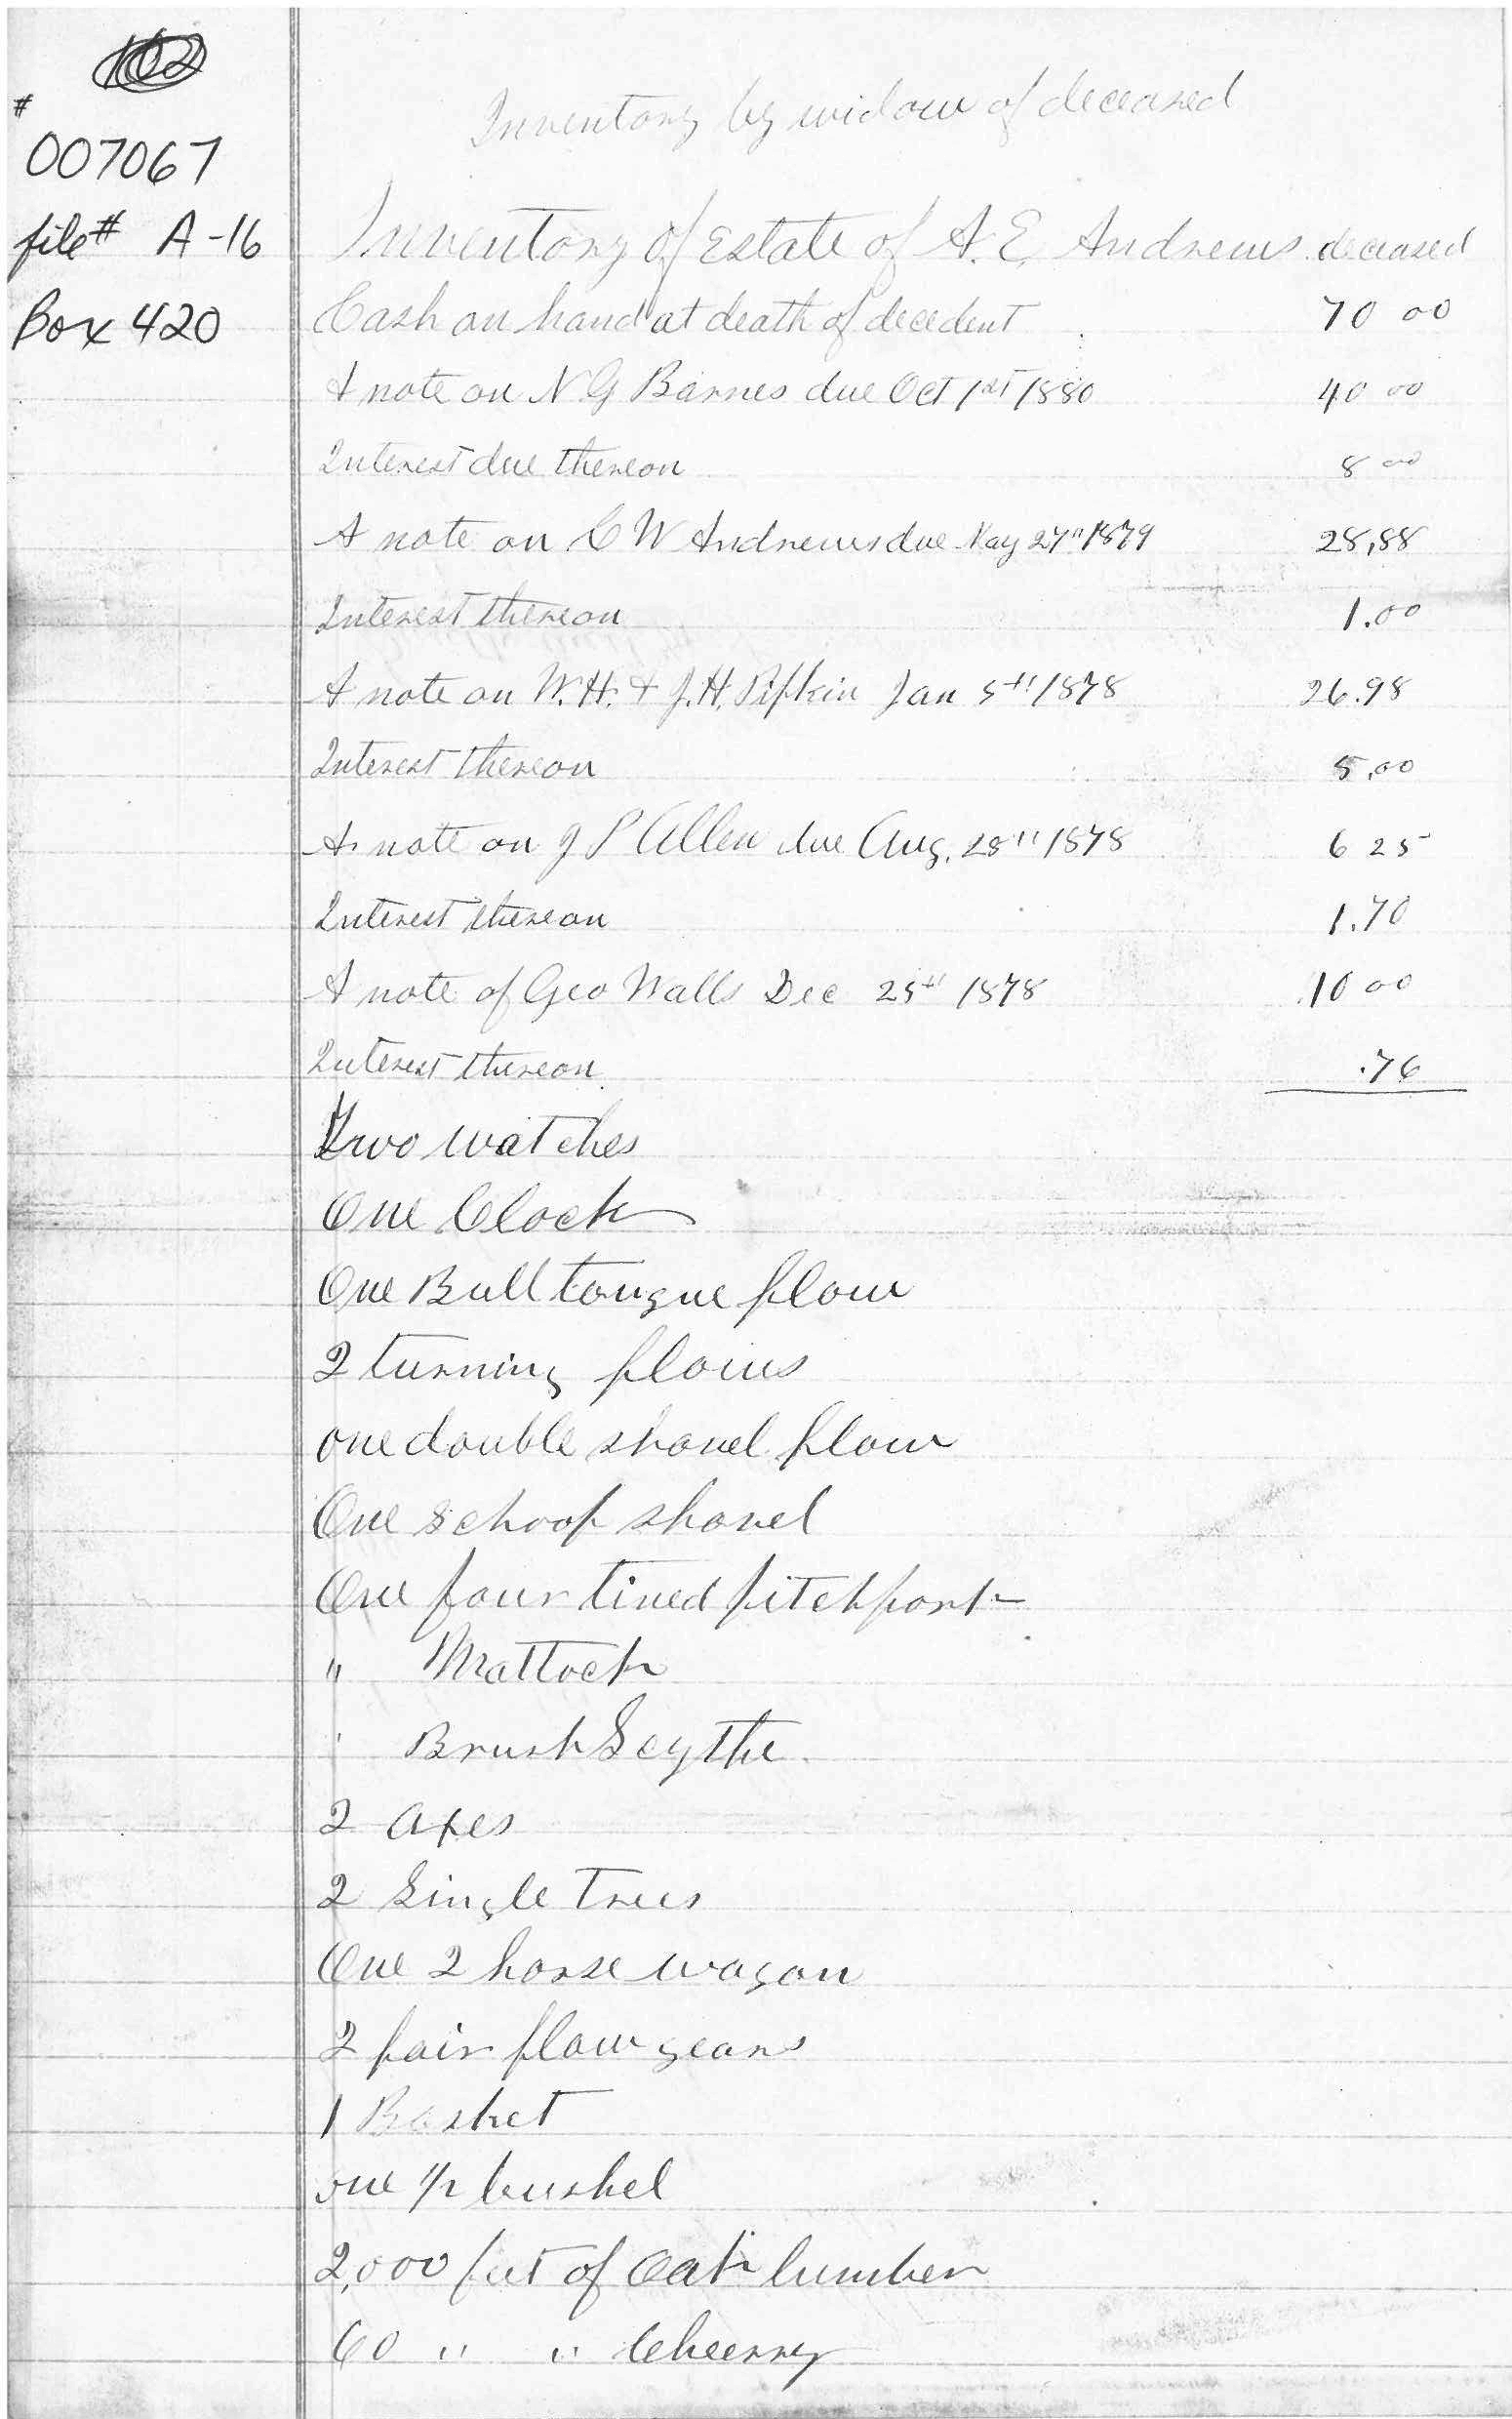 #
007067
file# A-16
Box 420
Inventory by widow of deceased
Inventory of Estate of A. E. Andrews deceased
Cash on hand at death of decedent 70 00
A note on N G Barnes due Oct 1st 1880 40 00
Interest due thereon 8 00
A note on C W Andrews due May 27" 1879 28,88
Interest thereon 1.00
A note on W. H. & J. H. Pipkin Jan 5th 1878 26.98
Interest thereon 5,00
A note on J P Allen due Aug. 28" 1878 6 25
Interest thereon 1.70
A note of Geo Walls Dec 25th 1878 10 00
Interest thereon .76
Two watches
One Clock
One Bull tongue plow
2 turning plows
one double shovel plow
One schoop shovel
One four tined pitchfork
" Mattock
" Brush Scythe
2 axes
2 Single Trees
One 2 horse wagon
2 pair plow gears
1 Basket
one 1/2 bushel
2,000 feet of Oak lumber
60 " " Cheerry